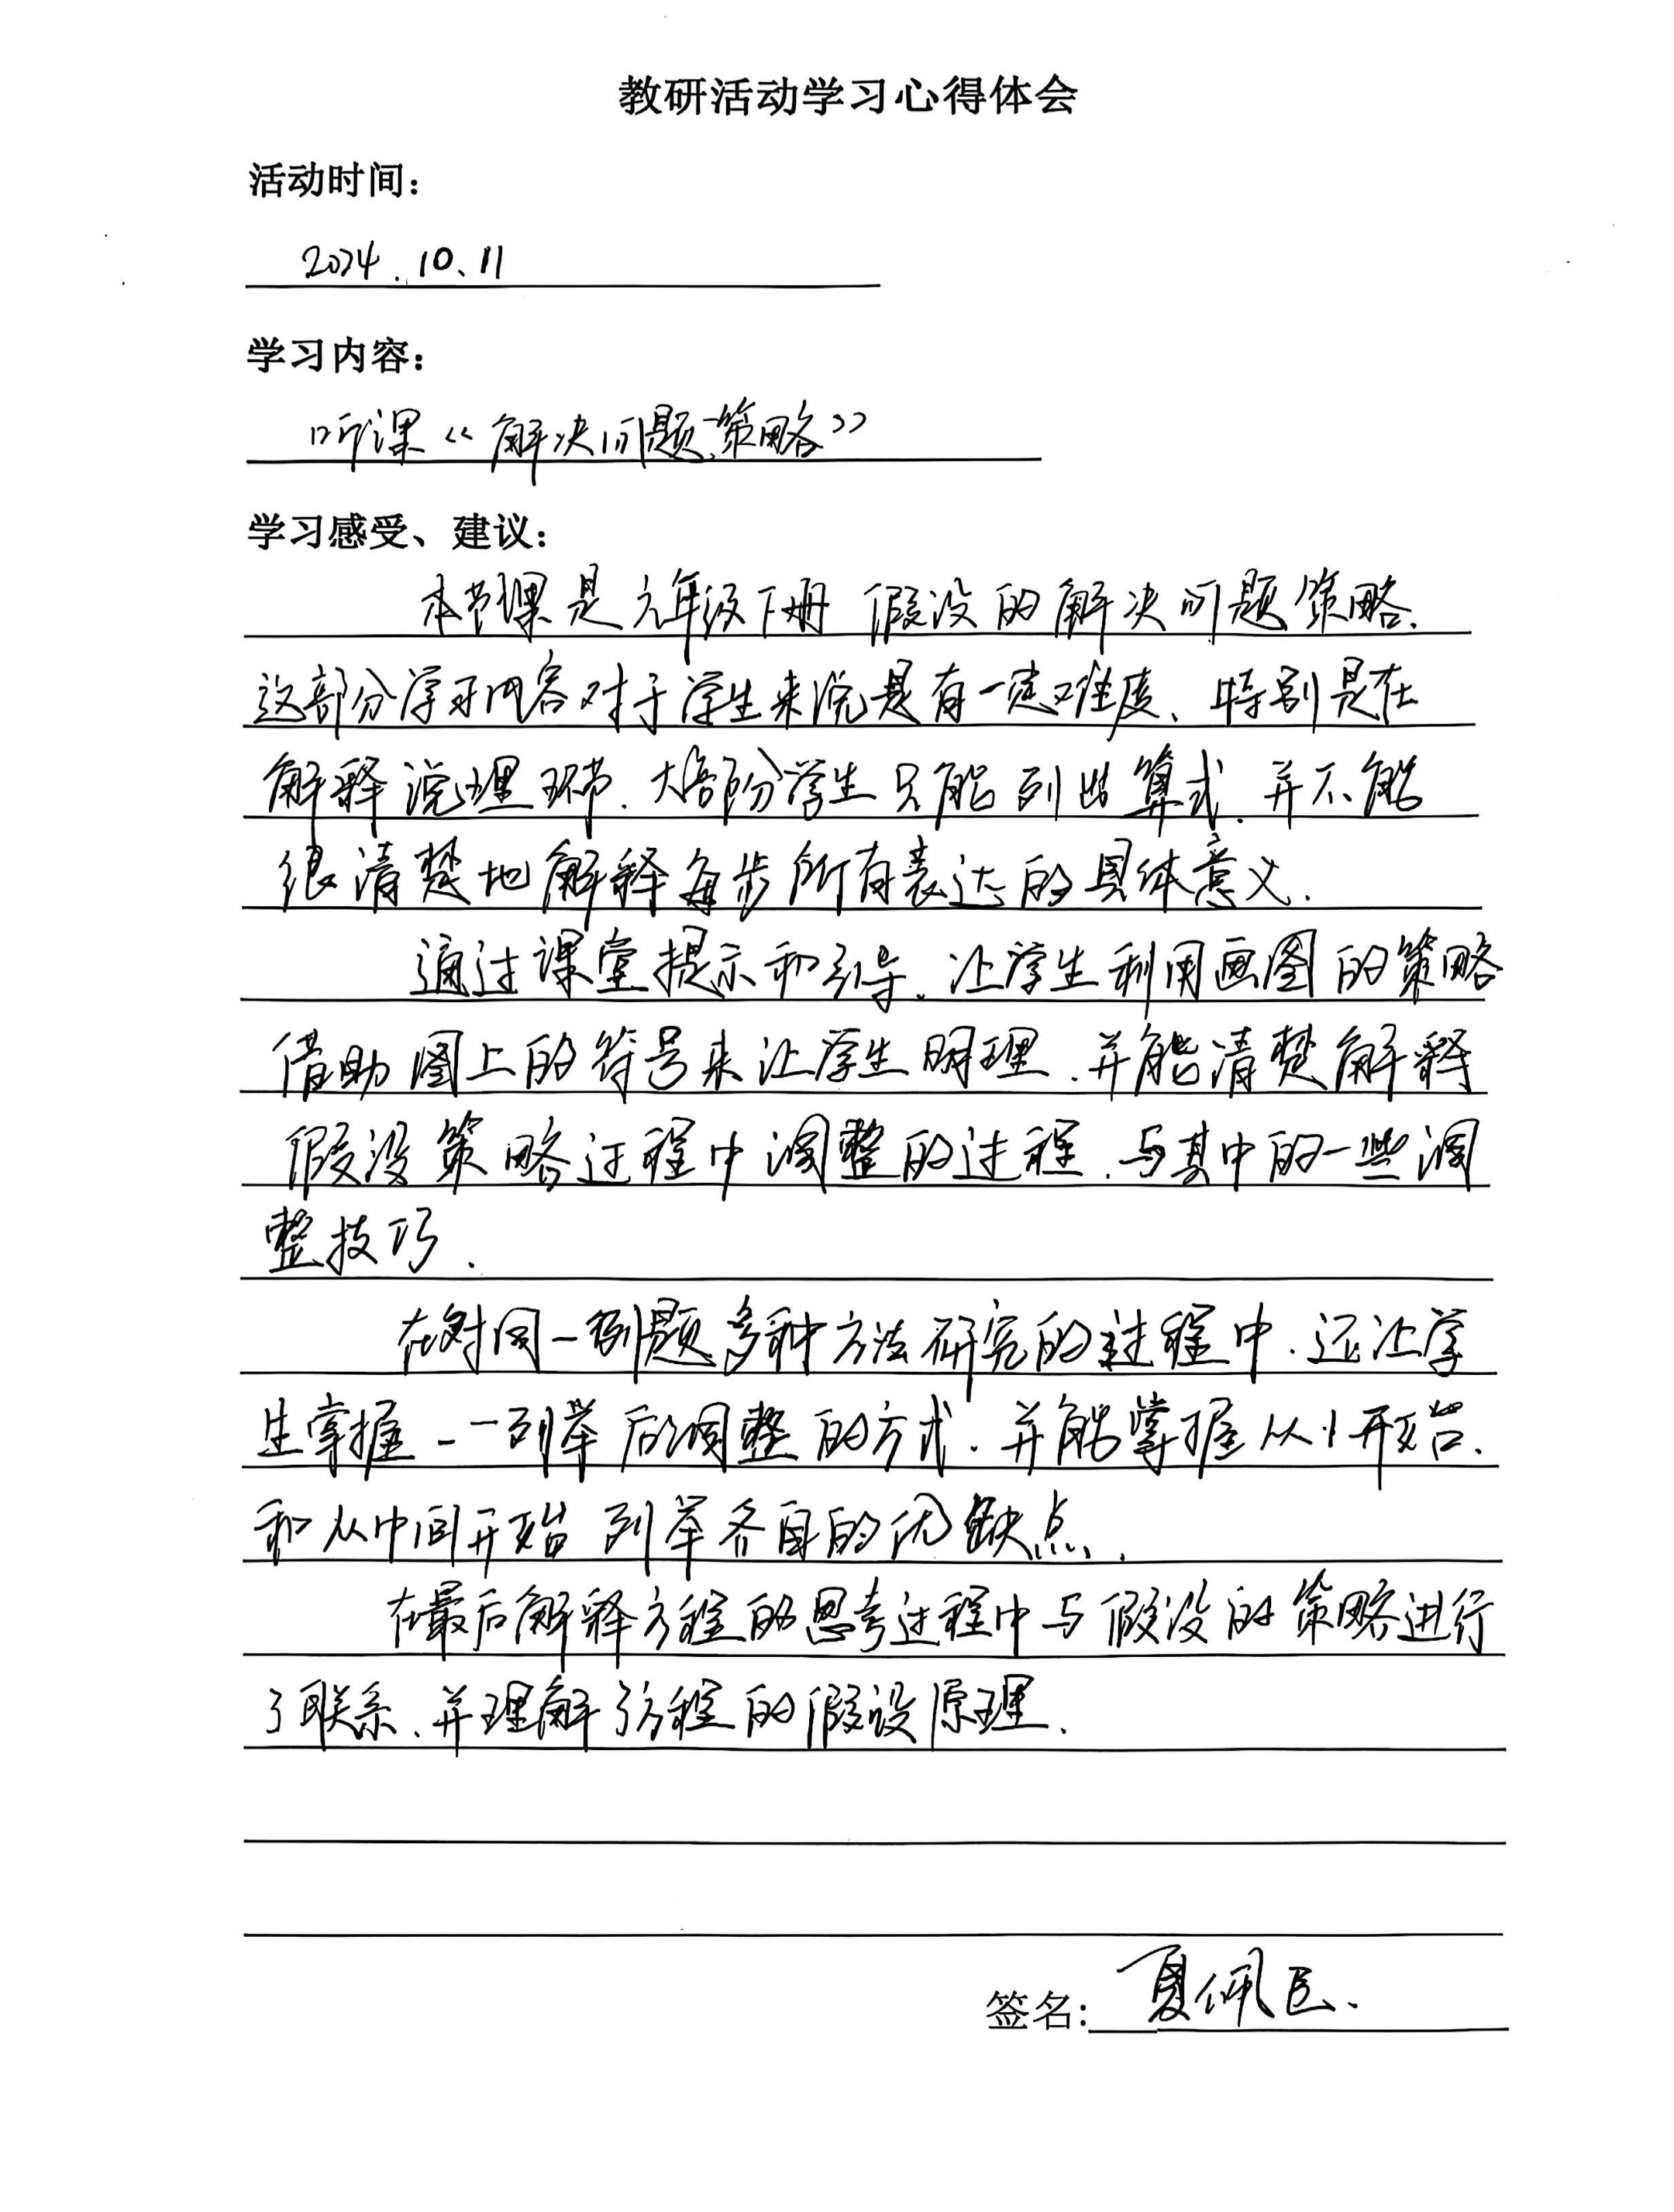 教研活动学习心得体会
活动时间：
2024.10.11
学习内容：
听课《解决问题策略》
学习感受、建议：
本节课是六年级下册 假设的解决问题策略.
这部分学习内容对于学生来说是有一定难度、特别是在
解释说理环节.大部分学生只能列出算式.并不能
很清楚地解释每步所有表达的具体意义.
通过课堂提示和引导.让学生利用画图的策略
借助图上的符号来让学生明理.并能清楚解释
假设策略过程中调整的过程.与其中的一些调
整技巧.
在对同一例题多种方法研究的过程中.还让学
生掌握一一列举后调整的方式.并能掌握从1开始.
和从中间开始 列举各自的优缺点.
在最后解释方程的思考过程中与假设的策略进行
了联系.并理解了方程的假设原理.
签名：夏佩